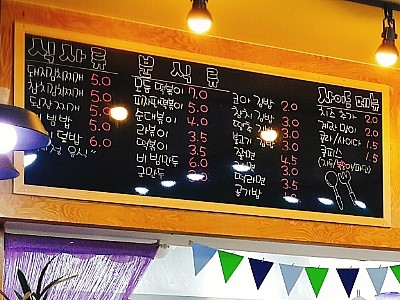 식사류
돼지김치찌개 5.0
참치김치찌개 5.0
된장찌개 5.0
빔밥 5.0
덮밥 6.0
분식류
모듬떡볶이 7.0
피자떡볶이 5.0
순대볶이 4.0
라볶이 3.5
떡볶이 3.5
비빔만두 6.0
군만두
김밥 2.0
참치김밥 3.0
김밥 3.0
불고기김밥 3.0
쫄면 4.5
라면 3.0
떡라면 3.5
공기밥 1.0
사이드메뉴
치즈추가 2.0
계란말이 2.0
콜라/사이다 1.5
쿨피스 1.5